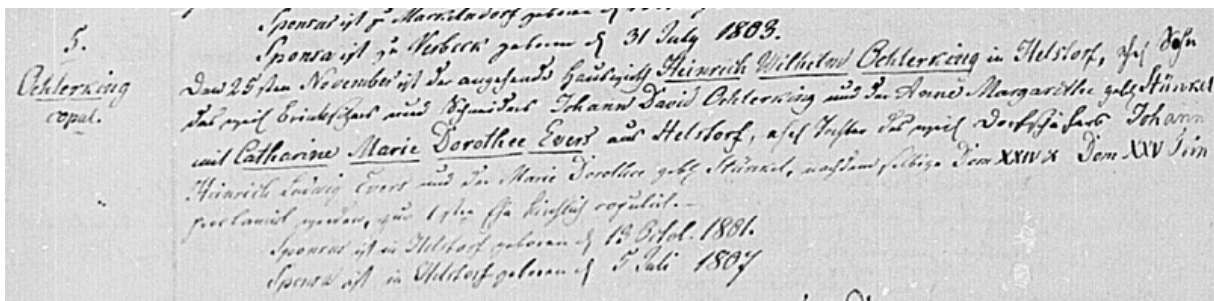 Sponsus ist zu Markendorf geboren d
Sponsa ist zu Vesbeck geboren d 31 July 1803.
5.
Oehlerking
copul.
Den 25sten November ist der angehende Hauswirth Heinrich Wilhelm Oehlerking in Helstorf, ehel Sohn
des weil Brinksitzers und Schneiders Johann David Oehlerking und der Anne Margarethe geb Stünkel
mit Catharine Marie Dorothee Evers aus Helstorf, ehel Tochter des weil Dorfschäfers Johann
Heinrich Ludwig Evers und der Marie Dorothee geb Stünkel, nachdem selbige Dom XXIV & Dom XXV Trin
proclamirt worden, zur 1sten Ehe kirchlich copulirt.
Sponsus ist in Helstorf geboren d 13 Octob. 1801.
Sponsa ist in Helstorf geboren d 5 Juli 1807